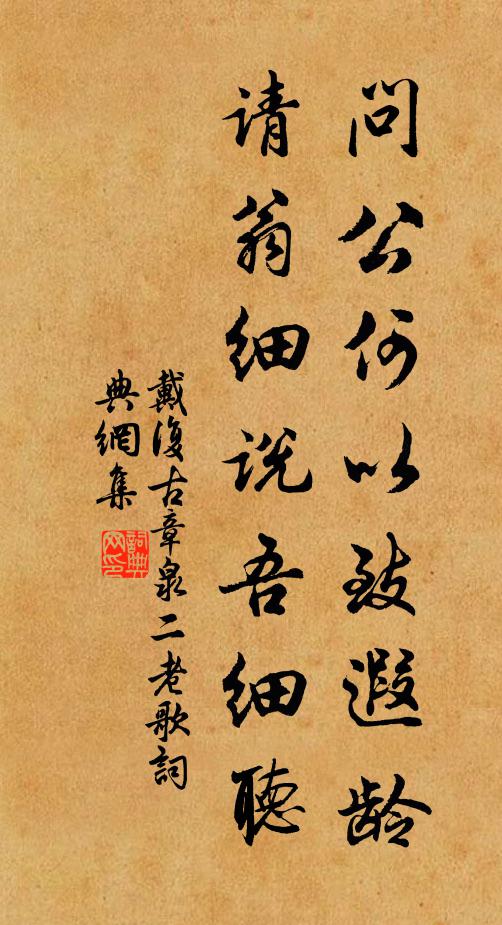 问公何以致遐龄
请翁细说吾细聽
戴復古章泉二老歌詞
典網集
詞典
网印